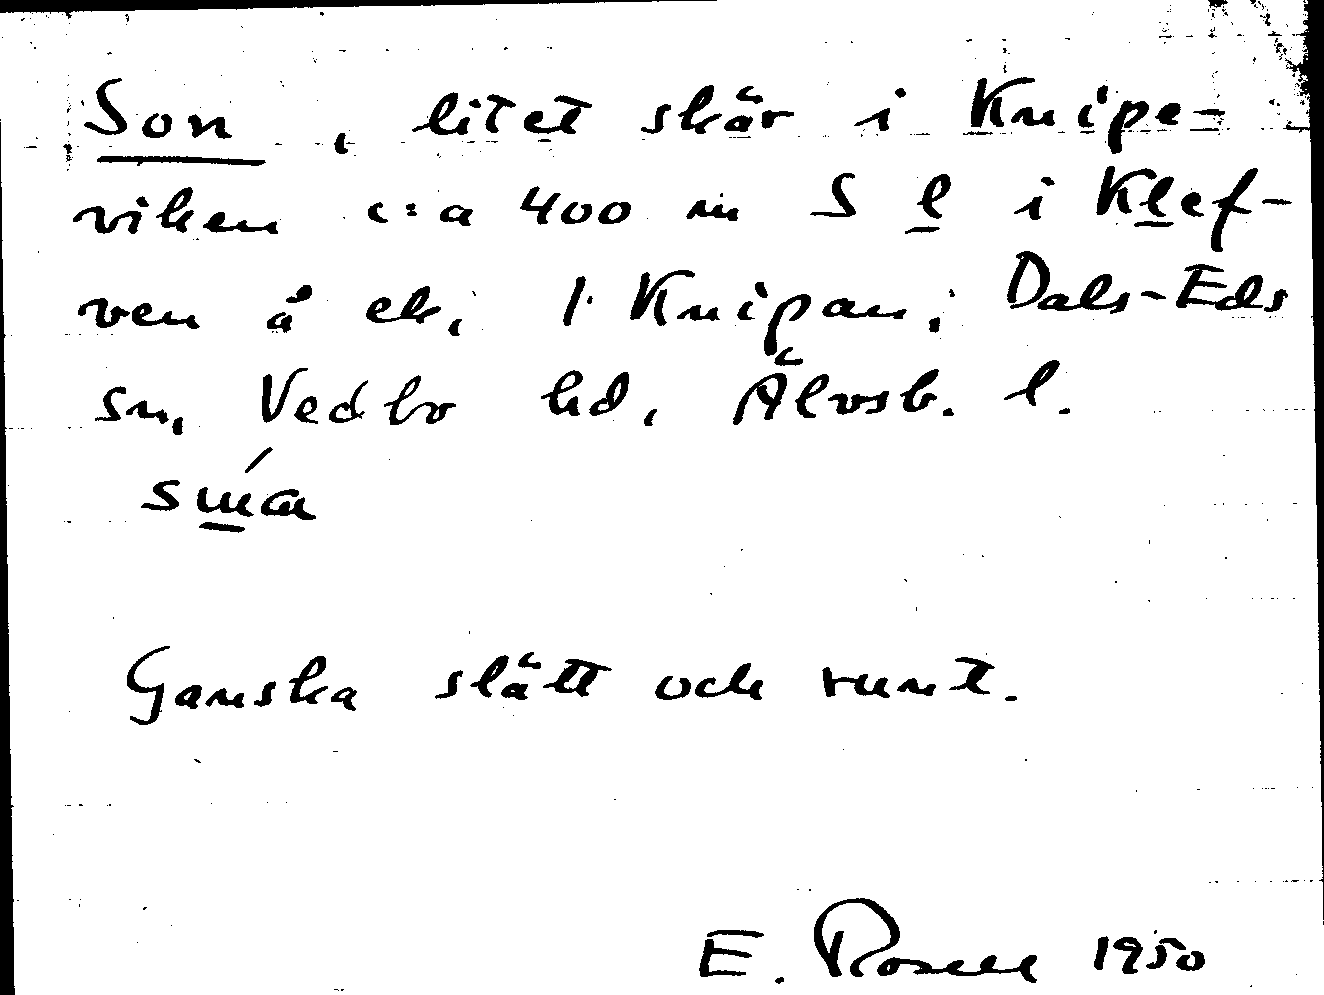 Son, litet skär i Knipe-
viken c:a 400 m S l i Klef-
ven å ek. 1 Knipan; Dals-Eds
sn, Vedbo hd, Älvsb. l.
Ganska slätt och runt.
E. Rosell 1950